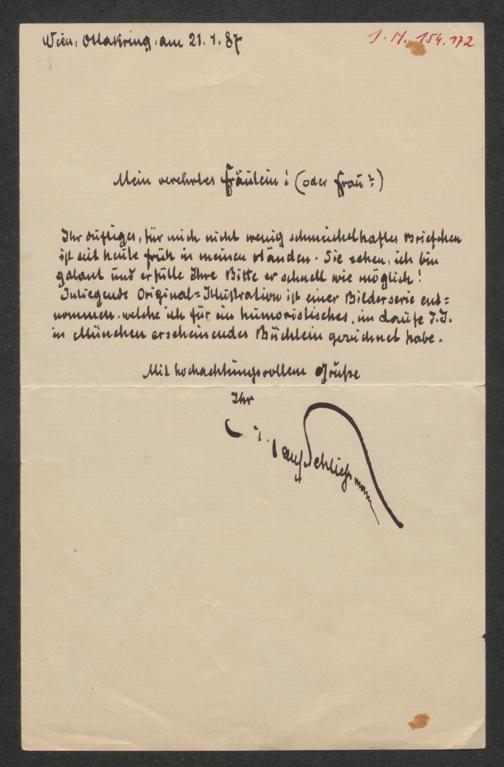 Wien, Ottakring, am 21.1.87
I. N. 154.172
Mein verehrtes Fräulein! (oder Frau?)
Ihr duftiges, für mich nicht wenig schmeichelhaftes Briefchen
ist seit heute früh in meinen Händen. Sie sehen, ich bin
galant und erfülle Ihre Bitte so schnell wie möglich!
Inliegende Original=Illustration ist einer Bilderserie ent=
nommen, welche ich für ein humoristisches, im Laufe d. J.
in München erscheinendes Büchlein gezeichnet habe.
Mit hochachtungsvollem Gruße
Ihr
Hans Schließmann